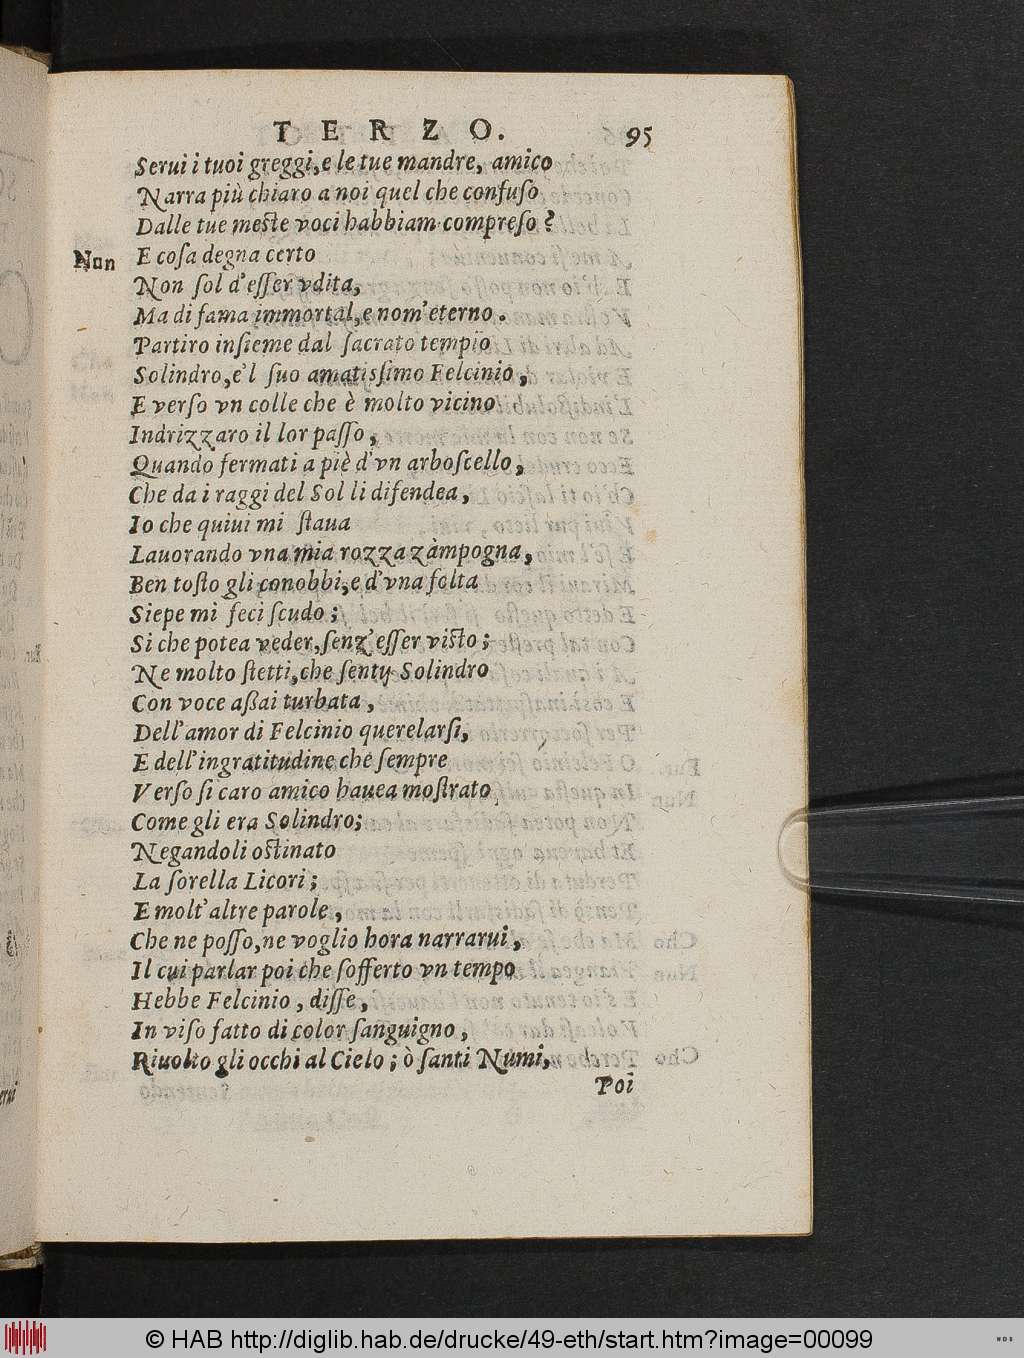 TERZO. 95
Serui i tuoi greggi, e le tue mandre, amico
Narra più chiaro a noi quel che confuſo
Dalle tue meſte voci habbiam compreſo?
Nun E coſa degna certo
Non ſol d'eſſer vdita,
Ma di fama immortal, e nom'eterno.
Partiro inſieme dal ſacrato tempio
Solindro, e'l ſuo amatiſſimo Felcinio,
E verſo vn colle che è molto vicino
Indrizzaro il lor paſſo,
Quando fermati a piè d'vn arboſcello,
Che da i raggi del Sol li difendea,
Io che quiui mi ſtaua
Lauorando vna mia rozza zàmpogna,
Ben toſto gli conobbi, e d'vna folta
Siepe mi feci ſcudo;
Si che potea veder, ſenz'eſſer viſto;
Ne molto ſtetti, che ſentij Solindro
Con voce aßai turbata,
Dell'amor di Felcinio querelarſi,
E dell'ingratitudine che ſempre
Verſo ſi caro amico hauea moſtrato
Come gli era Solindro;
Negandoli oſtinato
La ſorella Licori;
E molt'altre parole,
Che ne poſſo, ne voglio hora narrarui,
Il cui parlar poi che ſofferto vn tempo
Hebbe Felcinio, diſſe,
In viſo fatto di color ſanguigno,
Riuolto gli occhi al Cielo; ò ſanti Numi,
Poi
© HAB http://diglib.hab.de/drucke/49-eth/start.htm?image=00099